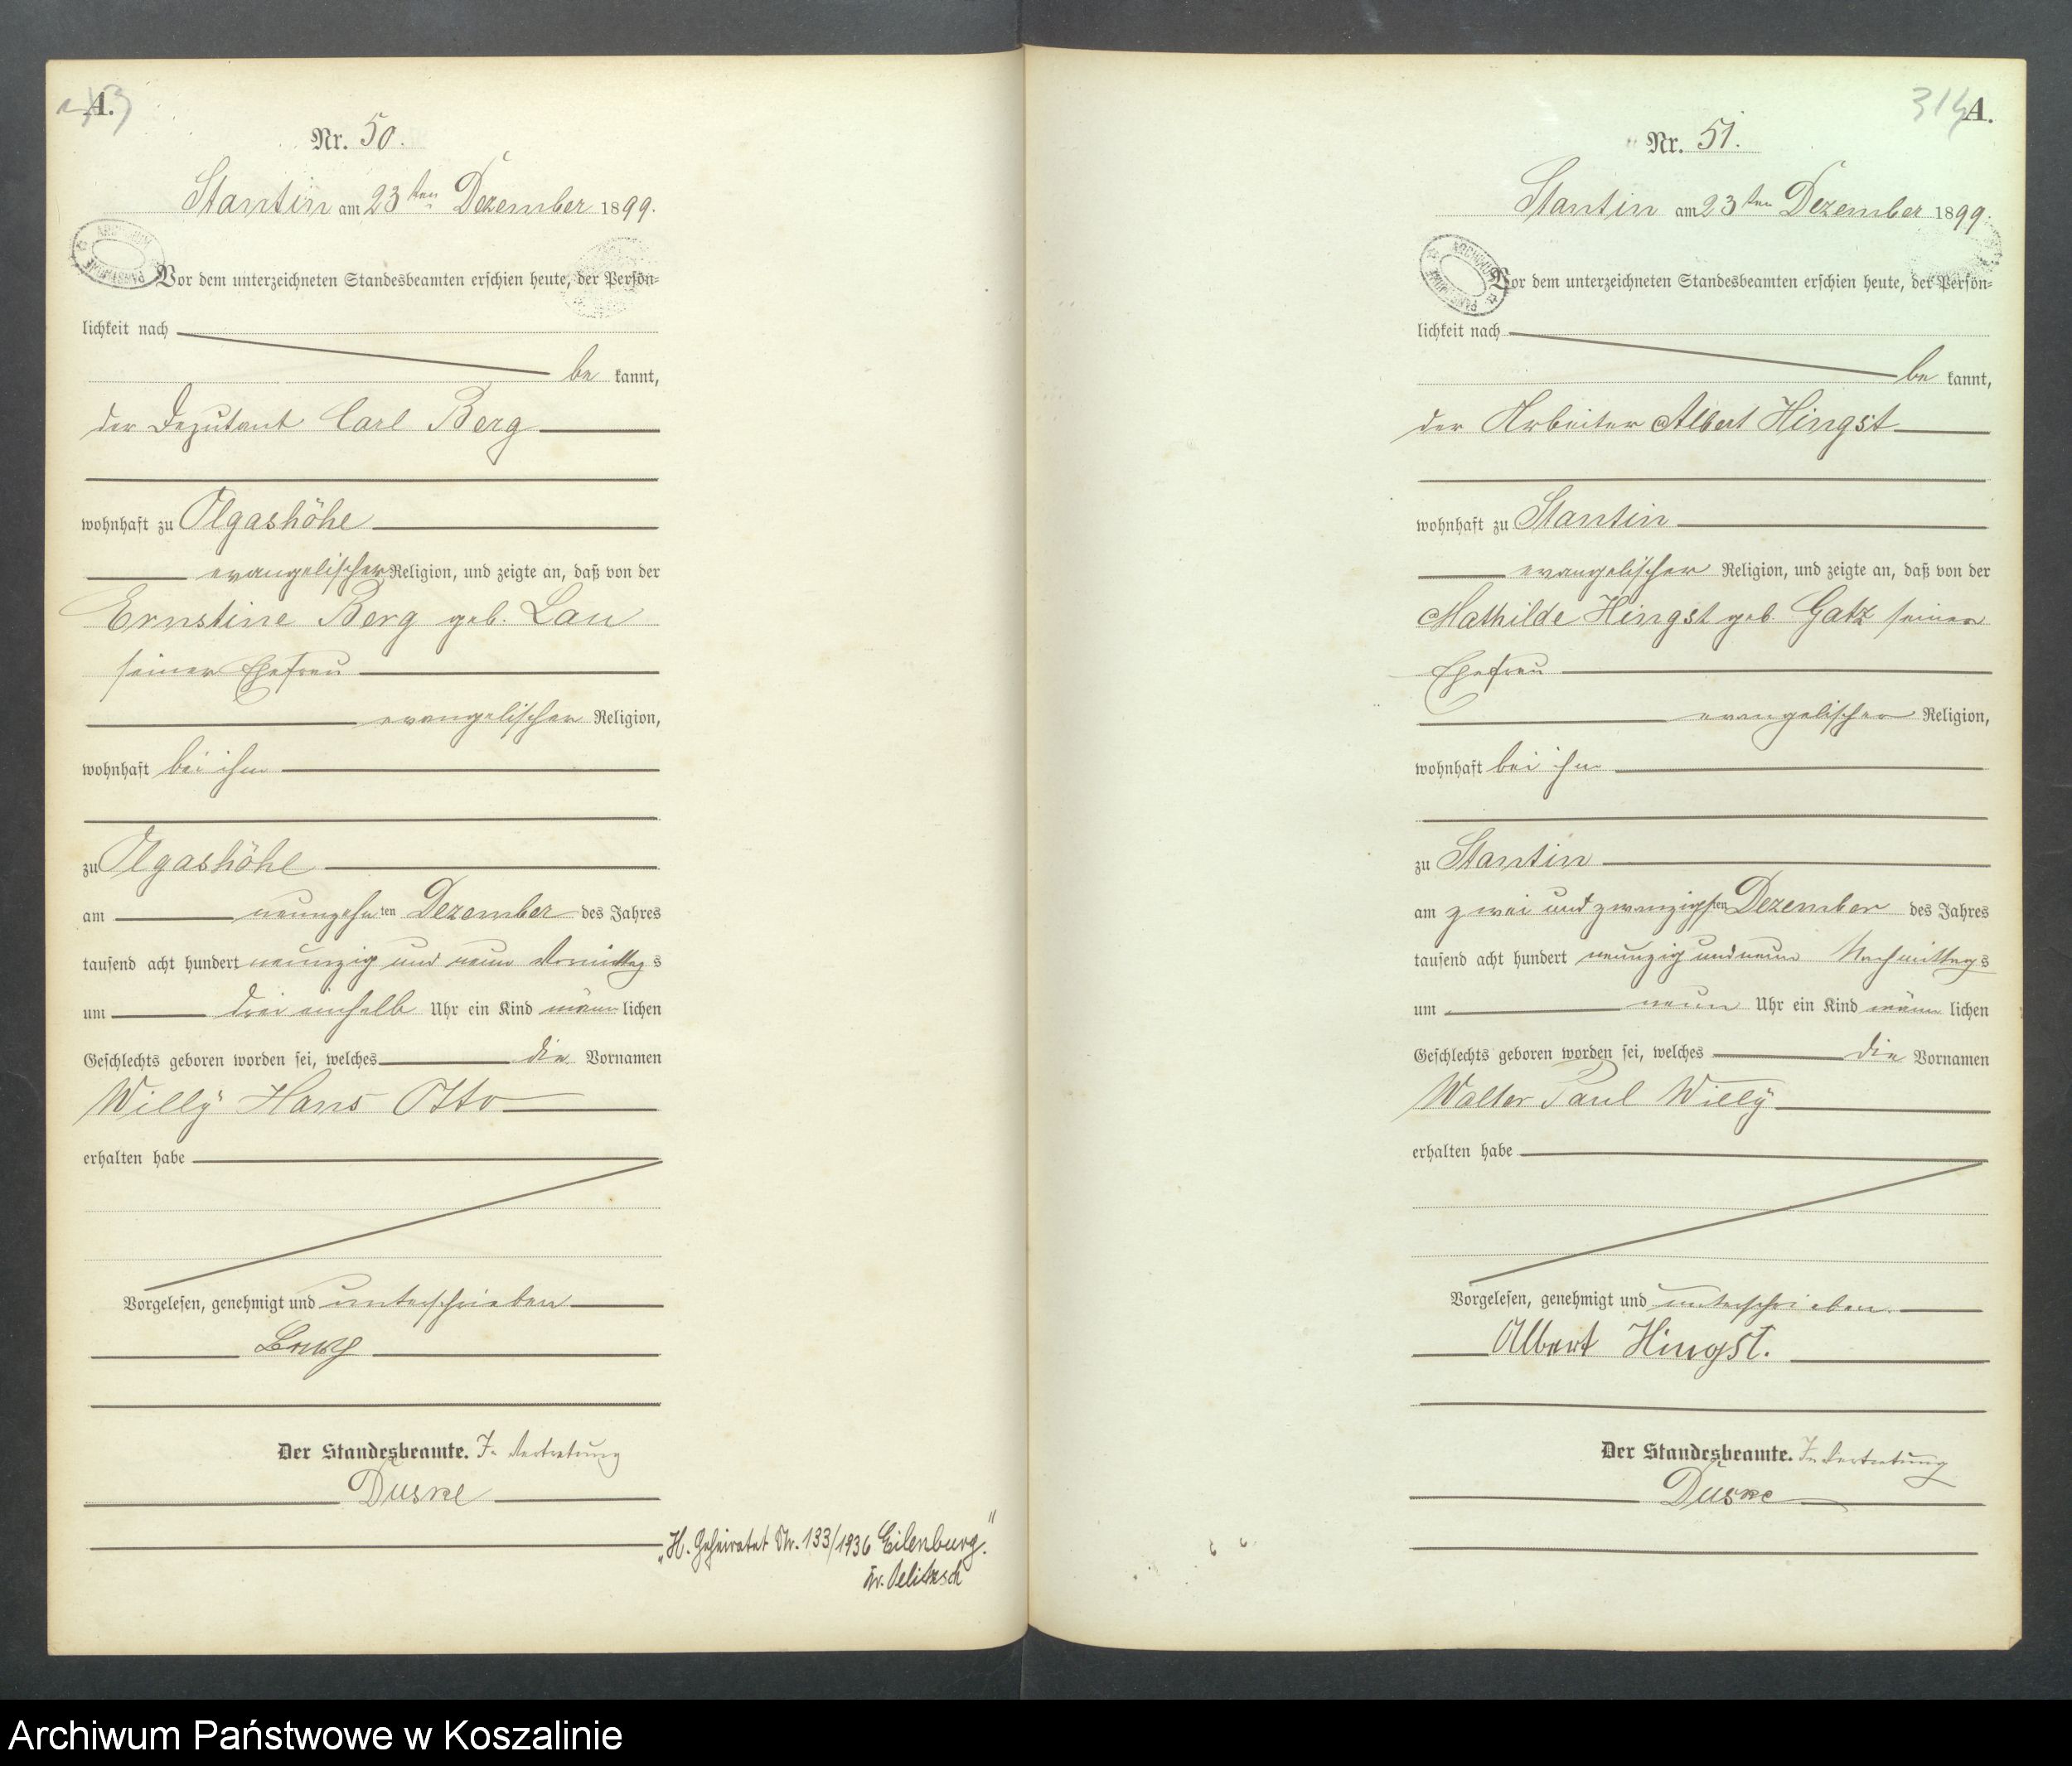 A.
Nr. 50.
Stantin am 23ten Dezember 1899.
Vor dem unterzeichneten Standesbeamten erschien heute, der Persön-
lichkeit nach
be kannt,
der Deputant Carl Berg
wohnhaft zu Olgashöhe
evangelischer Religion, und zeigte an, daß von der
Ernstine Berg geb. Lau
seiner Ehefrau
evangelischer Religion,
wohnhaft bei ihm
zu Olgashöhe
am neunzehnten Dezember des Jahres
tausend acht hundert neunzig und neun Vormittags
um drei einhalb Uhr ein Kind männlichen
Geschlechts geboren worden sei, welches die Vornamen
Willÿ Hans Otto
erhalten habe
Vorgelesen, genehmigt und unterschrieben
Berg
Der Standesbeamte. In Vertretung
Duske
„H. Geheiratet Nr. 133/1936 Eilenburg."
Kr. Delitzsch
314 A.
Nr. 51.
Stantin am 23ten Dezember 1899.
Vor dem unterzeichneten Standesbeamten erschien heute, der Persön-
lichkeit nach
be kannt,
der Arbeiter Albert Hingst
wohnhaft zu Stantin
evangelischer Religion, und zeigte an, daß von der
Mathilde Hingst geb. Gatz seiner
Ehefrau
evangelischer Religion,
wohnhaft bei ihm
zu Stantin
am zwei und zwanzigsten Dezember des Jahres
tausend acht hundert neunzig und neun Nachmittags
um neun Uhr ein Kind männlichen
Geschlechts geboren worden sei, welches die Vornamen
Walter Paul Willÿ
erhalten habe
Vorgelesen, genehmigt und unterschrieben.
Albert Hingst.
Der Standesbeamte. In Vertretung
Duske
Archiwum Państwowe w Koszalinie